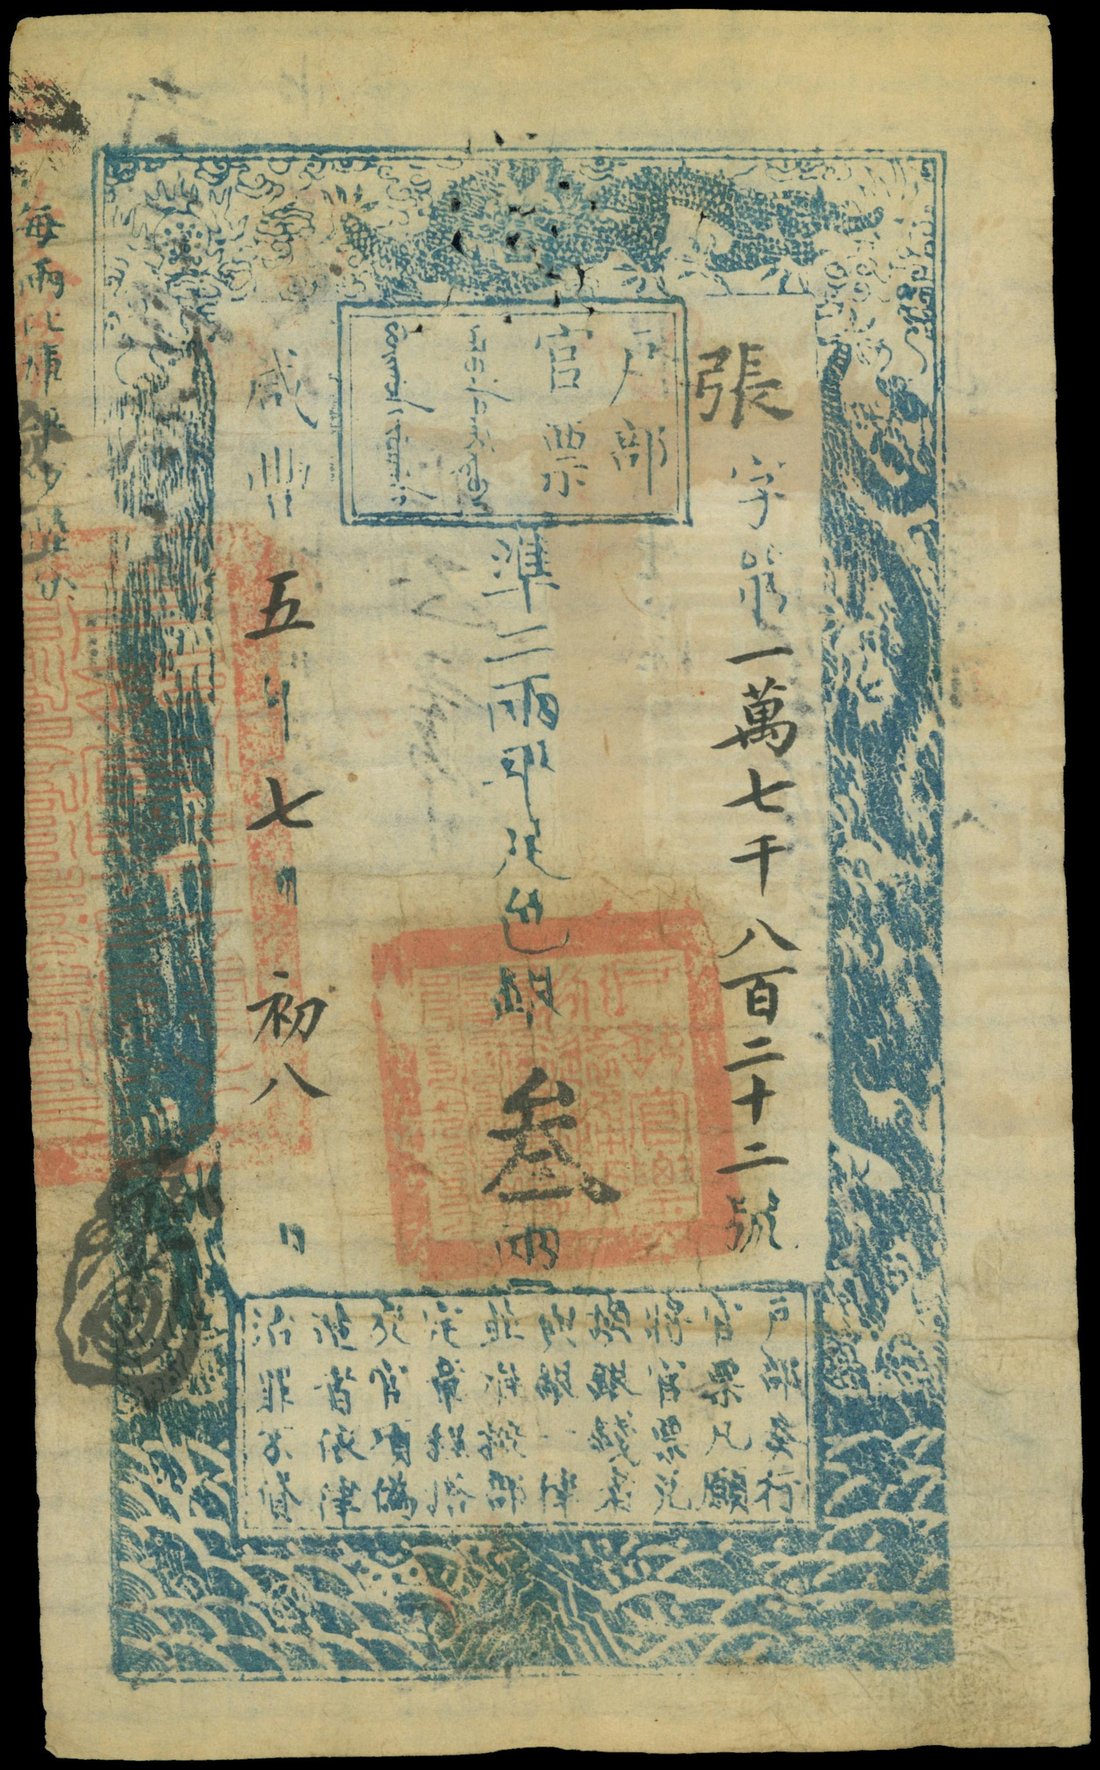 戶部
官票
張字第一萬七千八百二十二號
準二兩平足色銀叁兩
咸豐五年七月初八日
戶部奏行
官票凡願
將官票兌
換銀錢者
與銀一律
並准按部
定章搭
交官項偽
造者依律
治罪不貸
每兩比庫